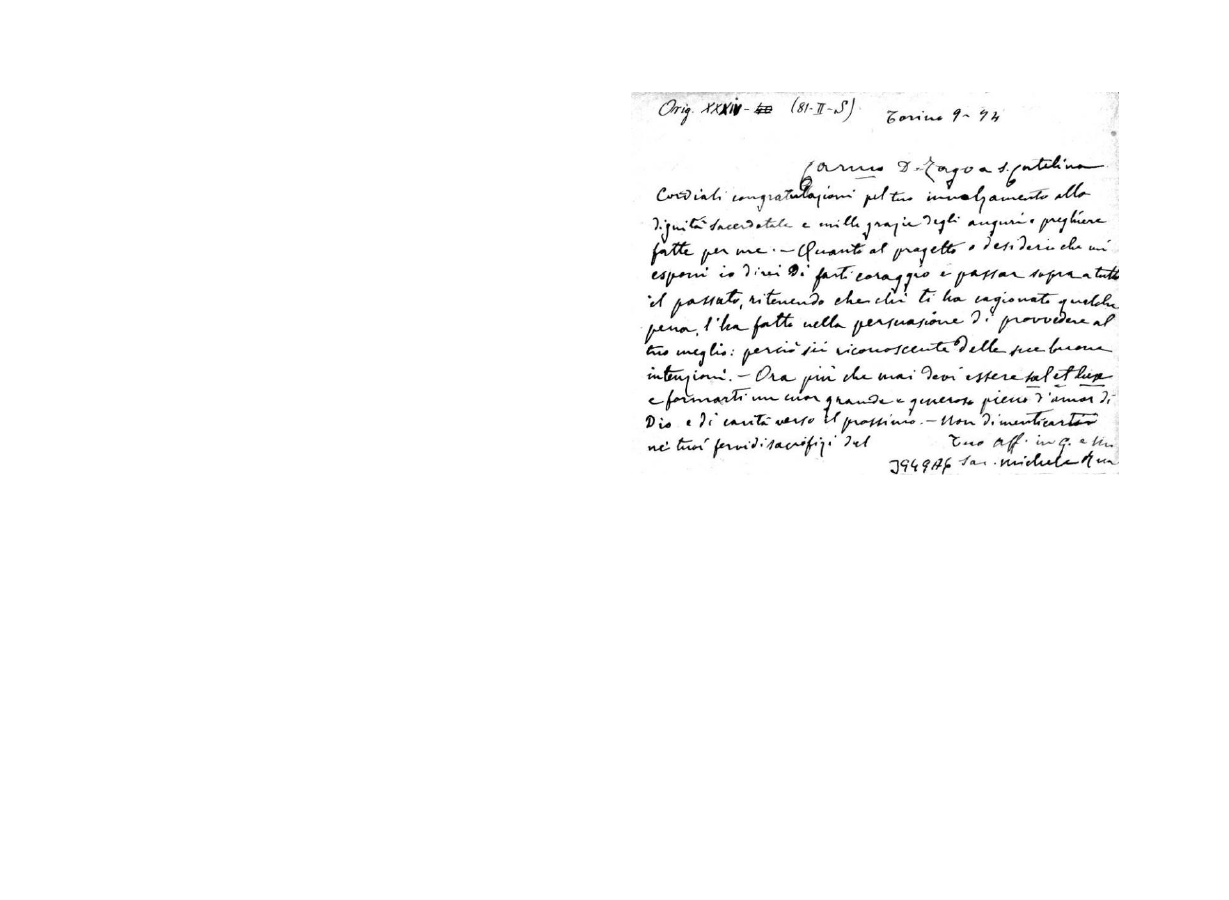 Orig. XXXIV - (81-II-S)
Torino 9- 94
Carmo D. Zago a S. Catelina
Cordiali congratulazioni pel tuo innalzamento alla
dignità sacerdotale e mille grazie degli auguri e preghiere
fatte per me. — Quanto al progetto o desiderio che mi
esponi io direi Di farti coraggio e passar sopra a tutto
il passato, ritenendo che chi ti ha cagionato qualche
pena, l'ha fatto nella persuasione di provvedere al
tuo meglio: perciò sii riconoscente delle sue buone
intenzioni. — Ora più che mai devi essere sal et lux
e formarti un cuor grande e generoso pieno d'amor di
Dio e di carità verso il prossimo. — Non dimenticar
ne' tuoi fervidi sacrifizi del Tuo aff. in G. e M.
3949A6 Sac. Michele Rua